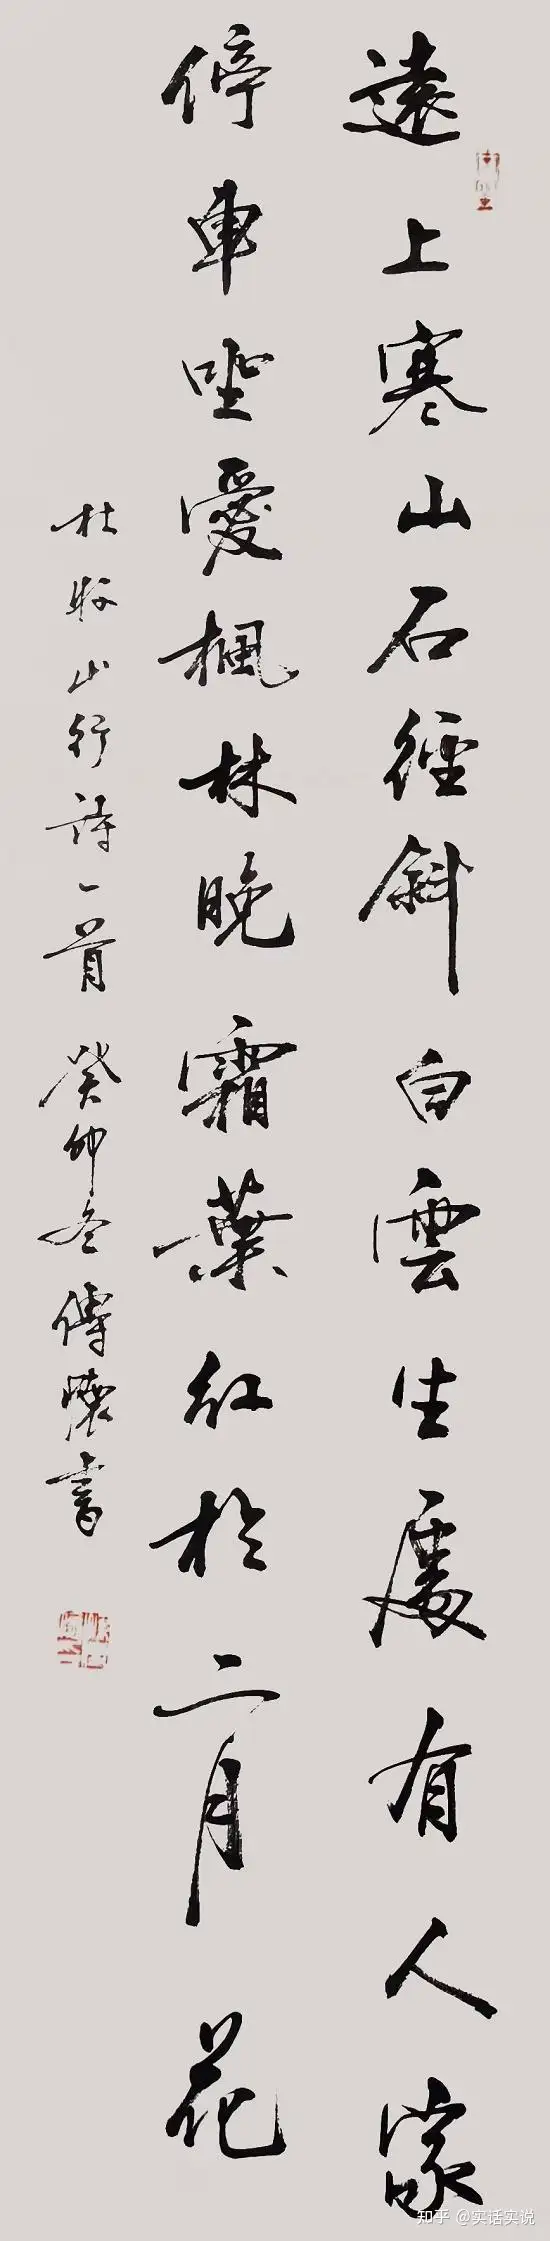 遠上寒山石徑斜白雲生處有人家
停車坐愛楓林晚霜葉紅於二月花
杜牧山行詩一首 癸卯冬傳懷書
知乎 @实话实说